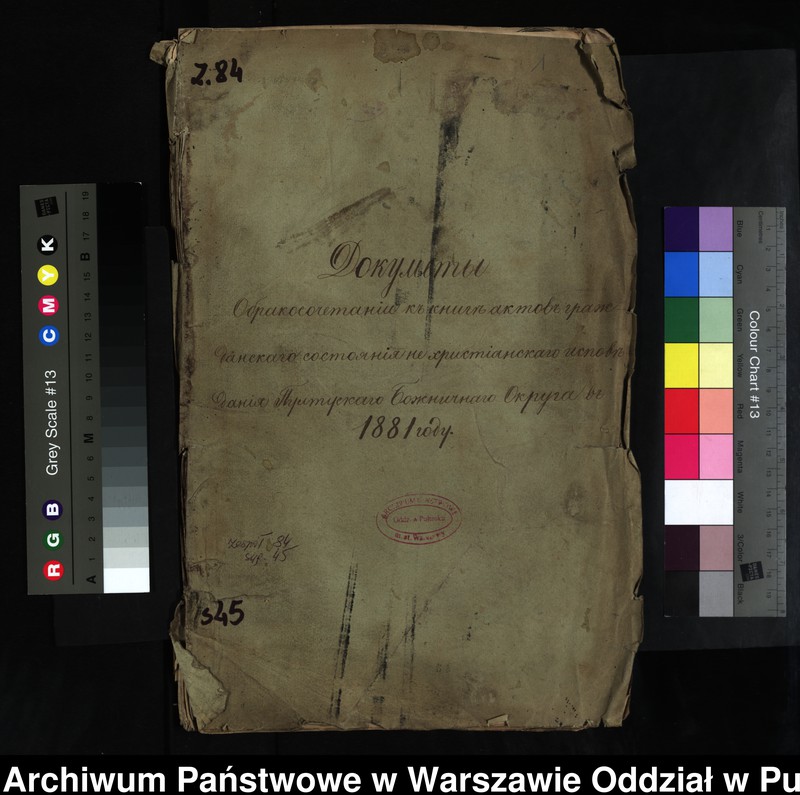 Z.84
Документы
О бракосочетанiи къ книгѣ актовъ граж-
данскаго состоянiя не христiанскаго исповѣ
данiя Пултускаго Божничнаго Округа въ
1881 году.
Oddz. w Pułtusku
m. st. Warszawy
Zespół 84
syg. 45
s45
Grey Scale #13
R G B C M Y K
A 1 2 3 4 5 6 M 8 9 10 11 12 13 14 15 B 17 18 19
Colour Chart #13
Blue
Cyan
Green
Yellow
Red
Magenta
White
3/Color
Black
Centimetres
Archiwum Państwowe w Warszawie Oddział w Pu